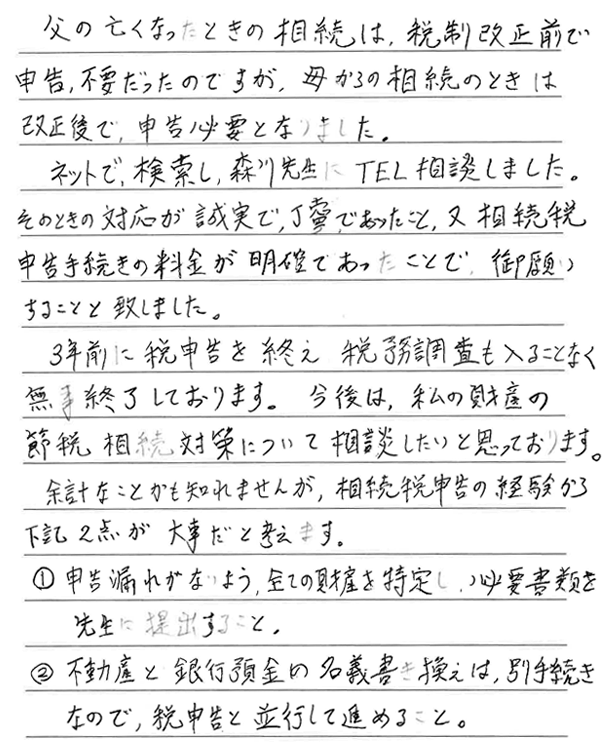 父の亡くなったときの相続は、税制改正前で
申告、不要だったのですが、母からの相続のときは
改正後で、申告必要となりました。
ネットで、検索し、森川先生に TEL相談しました。
そのときの対応が誠実で、丁寧であったこと、又相続税
申告手続きの料金が明確であったことで、御願い
することと致しました。
3年前に税申告を終え 税務調査も入ることなく
無事終了しております。 今後は、私の財産の
節税 相続対策について相談したいと思っております。
余計なことかも知れませんが、相続税申告の経験から
下記2点が 大事だと考えます。
① 申告漏れがないよう、全ての財産を特定し、必要書類を
先生に提出すること。
② 不動産と銀行預金の名義書き換えは、別手続き
なので、税申告と並行して進めること。